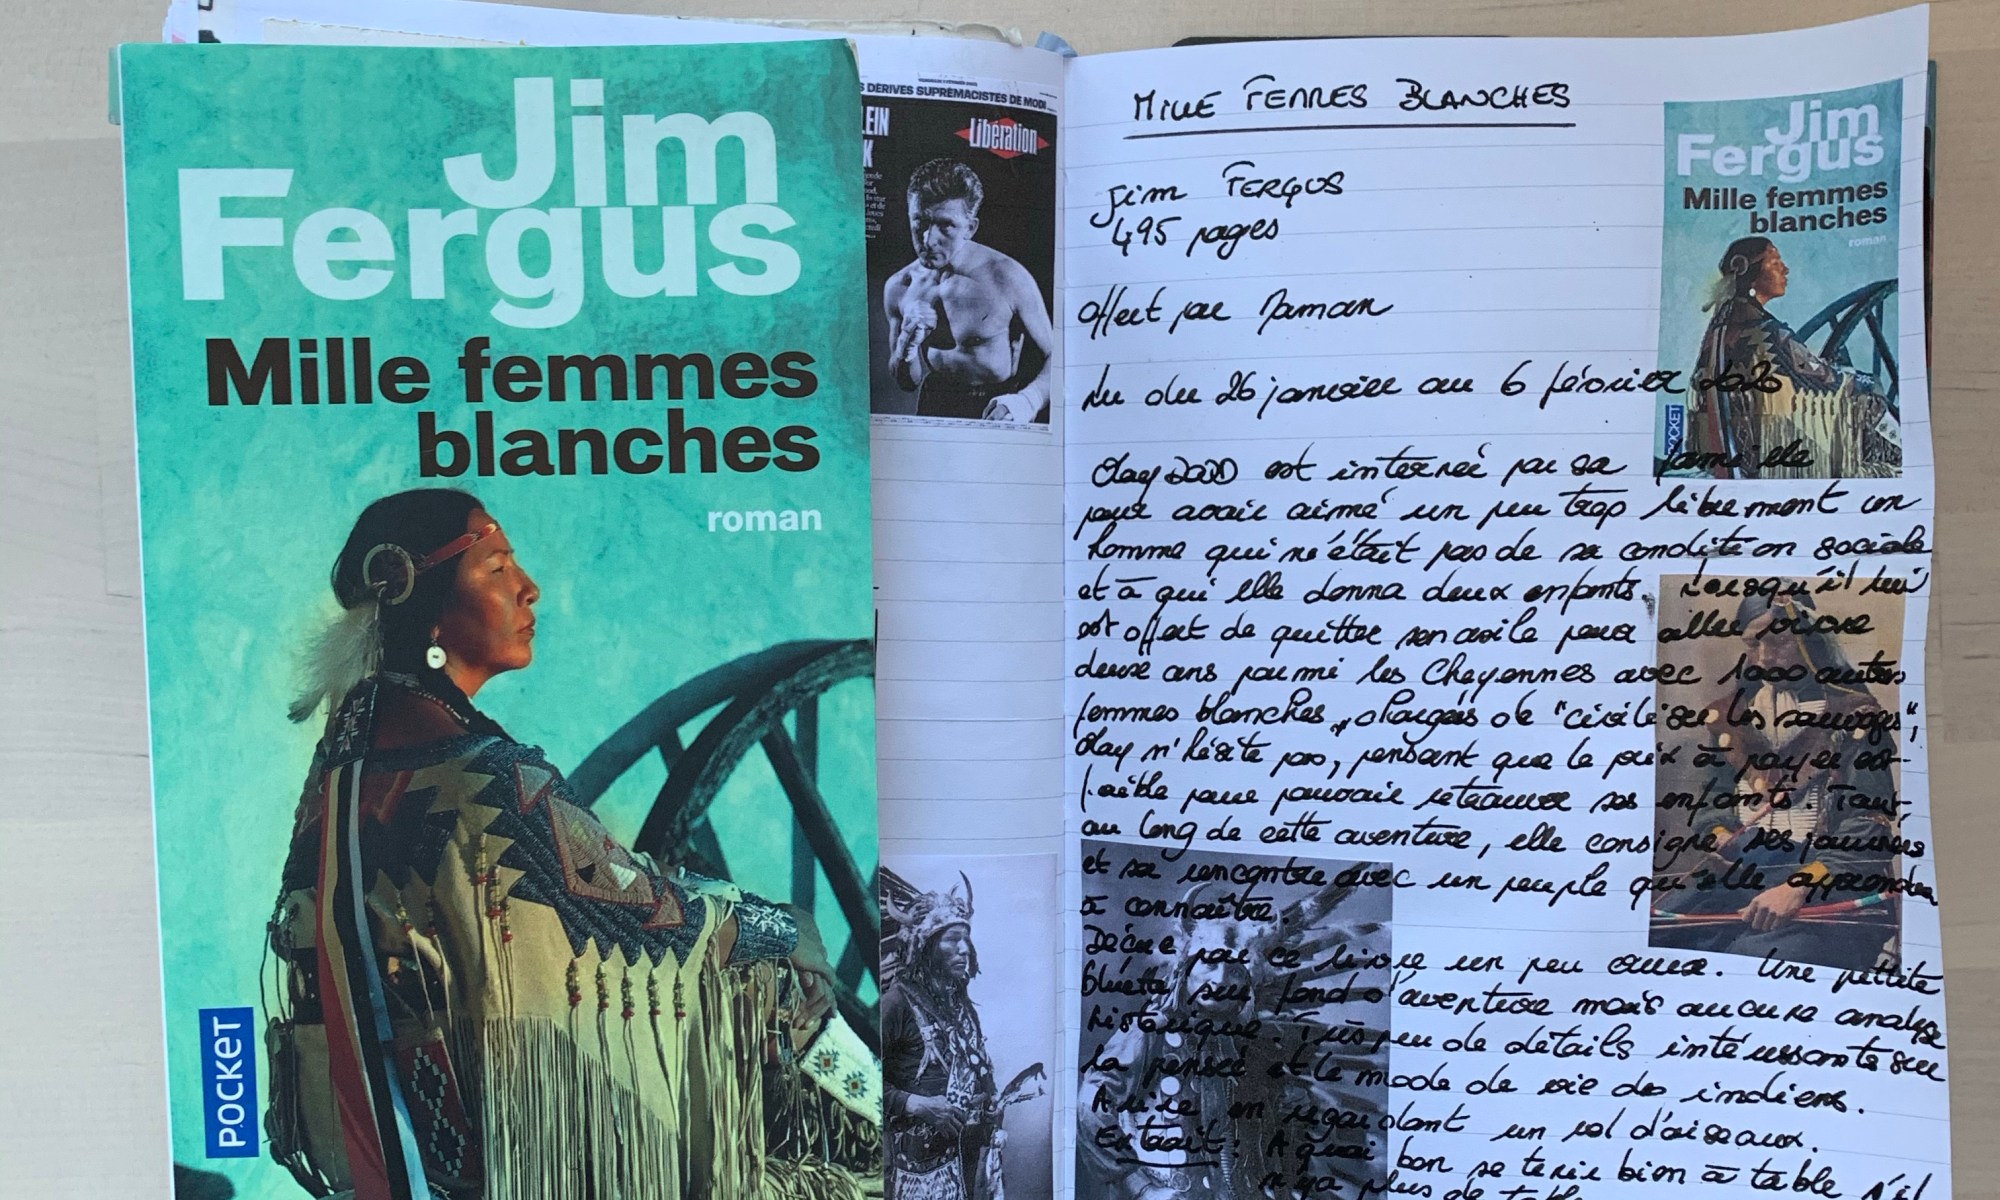 Jim
Fergus
Mille femmes
blanches
roman
POCKET
S DÉRIVES SUPRÉMACISTES DE MODI
LEIN
K
Libération
MILLE FEMMES BLANCHES
Jim FERGUS
495 pages
Offert par Maman
Lu du 26 janvier au 6 février 2020
Jim
Fergus
Mille femmes
blanches
roman
POCKET
May DODD est internée par sa famille
pour avoir aimé un peu trop librement un
homme qui n'était pas de sa condition sociale
et à qui elle donna deux enfants. Lorsqu'il lui
est offert de quitter son asile pour aller vivre
deux ans parmi les Cheyennes avec 1000 autres
femmes blanches, chargées de "civiliser les sauvages",
May n'hésite pas, pensant que le prix à payer est
faible pour pouvoir retrouver ses enfants. Tout
au long de cette aventure, elle consigne ses journées
et sa rencontre avec un peuple qu'elle apprendra
à connaître.
Déçue par ce livre un peu creux. Une petite
bluette sur fond d'aventure mais aucune analyse
historique. Très peu de détails intéressants sur
la pensée et le mode de vie des indiens.
A lire en regardant un vol d'oiseaux.
Extrait : A quoi bon se tenir bien à table s'il
n'y a plus de table